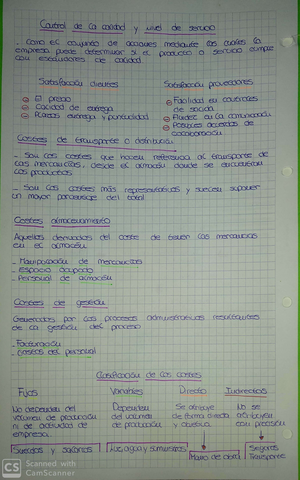 Control de la calidad y nivel de servicio
- Como el conjunto de acciones mediante las cuales la
empresa puede determinar si el producto o servicio cumple
con estándares de calidad.
Satisfacción clientes
El precio
Calidad de entrega
Plazos entrega y puntualidad
Satisfacción proveedores
Facilidad en
Fluidez en la comunicación
Posibles acuerdos de
colaboración
Costes de transporte o distribución
- Son los costes que hacen referencia al transporte de
las mercancías, desde el almacén donde se encuentran
los productos
- Son los costes más representativos y suelen suponer
un mayor porcentaje del total
Costes almacenamiento
Aquellos derivados del coste de tener las mercancías
en el almacén
- Manipulación de mercancías
- Espacio ocupado
- Personal de almacén
Costes de gestión
Generados por los procesos administrativos resultantes
de la gestión del proceso
- Facturación
- Gastos del personal
Clasificación de los costes
Fijos
No dependen del
volumen de producción
ni de actividad de
empresa
Sueldos y salarios
Variables
Dependen
del volumen
de producción
Luz, agua y suministros
Directo
Se atribuye
de forma directa
y
Mano de obra
Indirectos
No se
atribuyen
con precisión
Seguros
Transporte
CS
Scanned with
CamScanner